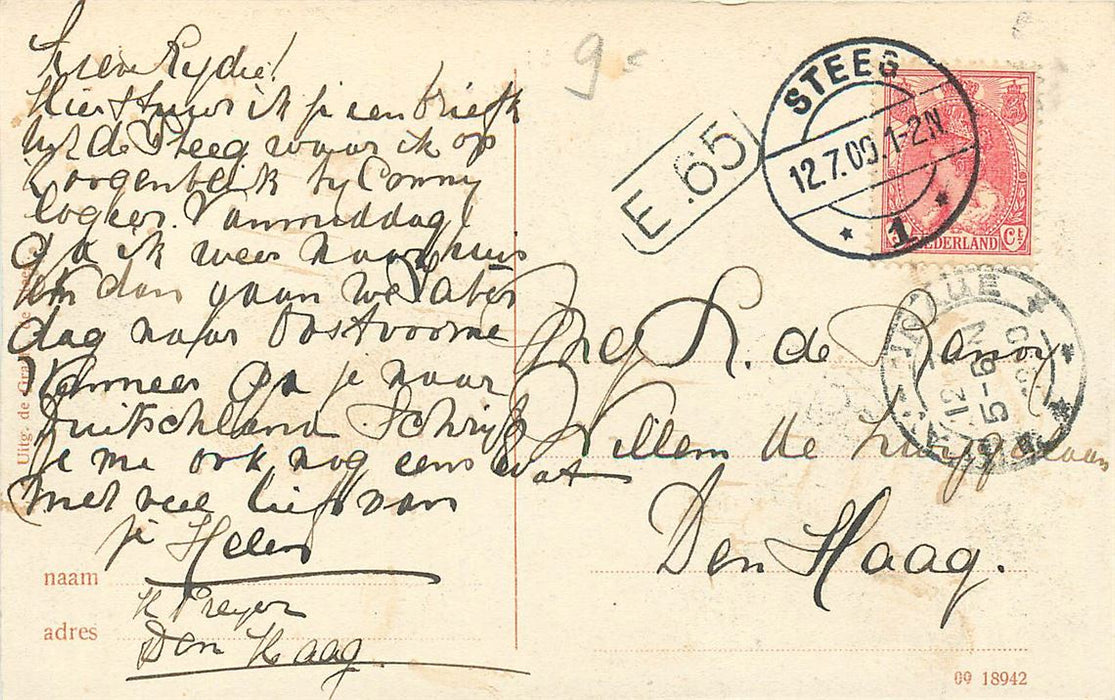 Lieve Rydie!
Hier stuur ik je een briefk
uyt de Steeg waar ik op
't oogenblik by Conny
logeer. Vanmiddag
ga ik weer naar huis
en dan gaan we Zater
dag naar Oostvoorne
Wanneer ga je naar
Duitschland. Schrijf
je me ook nog eens wat
met veel liefs van
je Helen
naam
H Preyer
adres
Den Haag.
Uitg. de
9-
E.65
STEEG
12.7.09.1-2N
1
NEDERLAND
Ct
12
5-6N
R. de
Willem de
Den Haag.
09 18942